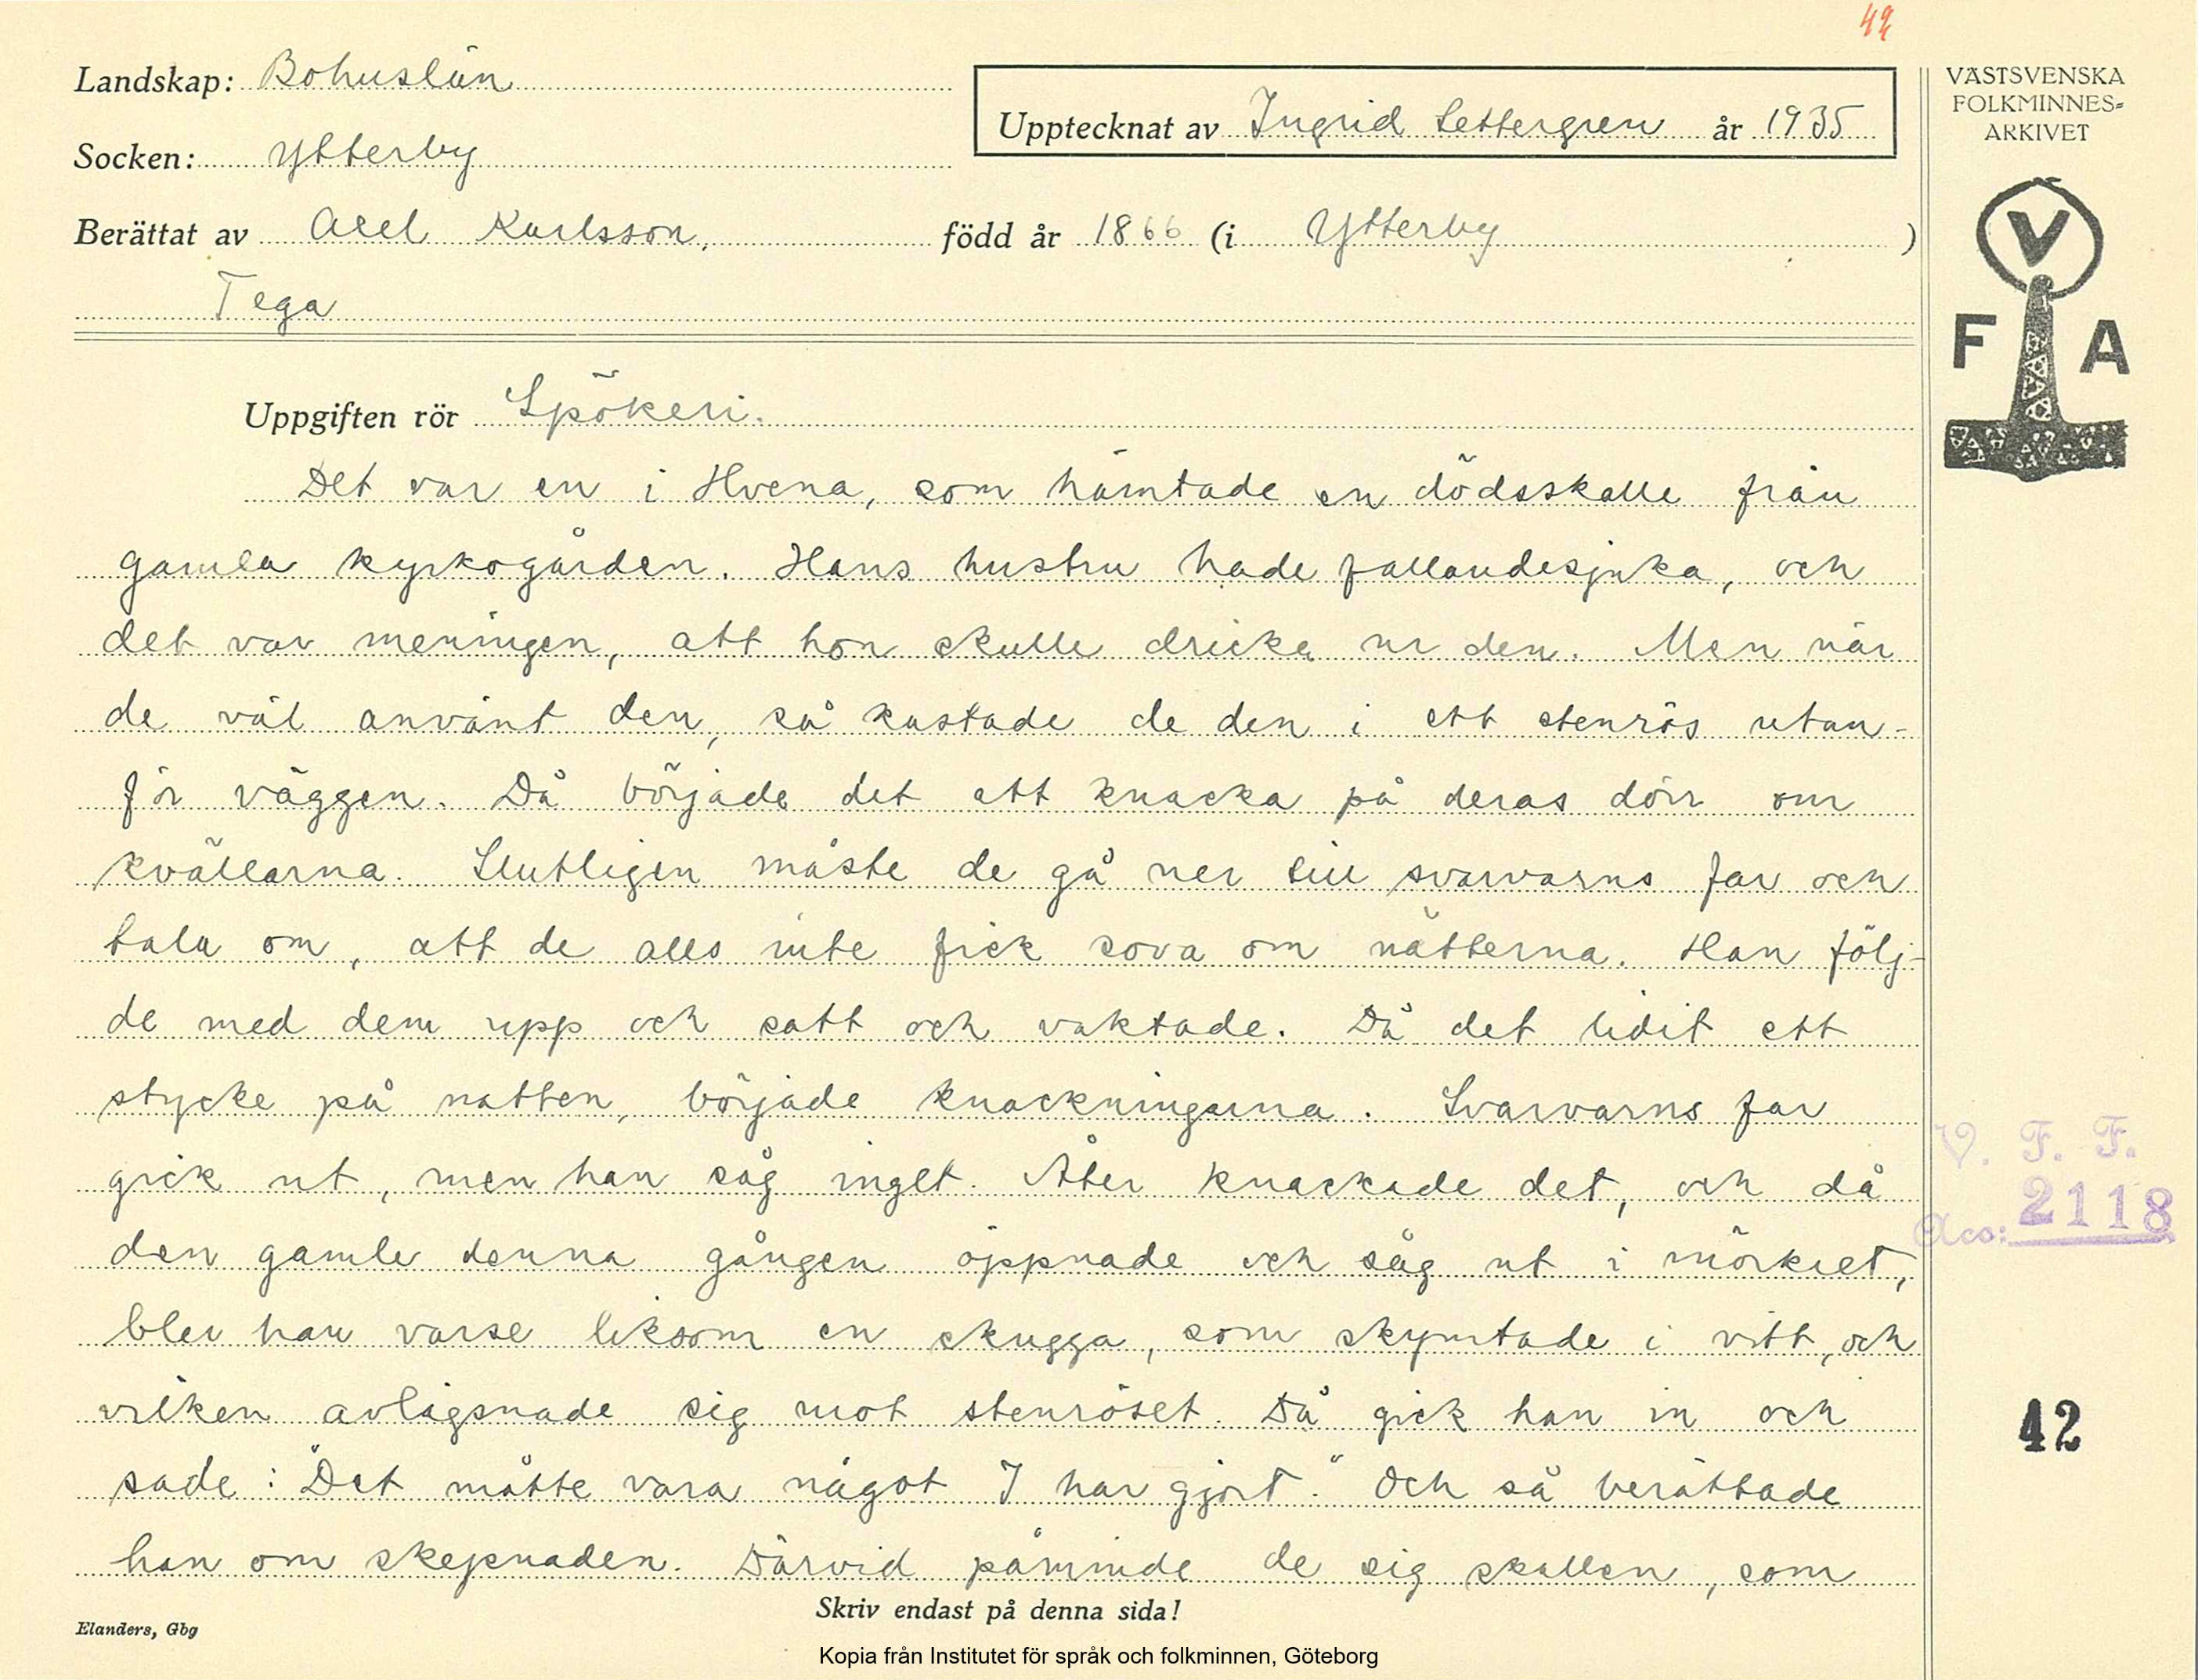 42
Landskap: Bohuslän
Upptecknat av Ingrid Settergren år 1935
Socken: Ytterby
Berättat av Axel Karlsson, född år 1866 (i Ytterby )
Tega
VÄSTSVENSKA
FOLKMINNES-
ARKIVET
V
F A
Uppgiften rör Spökeri.
Det var en i Hvena, som hämtade en dödsskalle från
gamla kyrkogården. Hans hustru hade fallandesjuka, och
det var meningen, att hon skulle dricka ur den. Men när
de väl använt den, så kastade de den i ett stenrös utan-
för väggen. Då började det att knacka på deras dörr om
kvällarna. Slutligen måste de gå ner till svarvarns far och
tala om, att de alls inte fick sova om nätterna. Han följ-
de med dem upp och satt och vaktade. Då det lidit ett
stycke på natten, började knackningarna. Svarvarns far
gick ut, men han såg inget. Åter knackade det, och då
den gamle denna gången öppnade och såg ut i mörkret,
blev han varse liksom en skugga, som skymtade i vitt, och
vilken avlägsnade sig mot stenröset. Då gick han in och
sade: "Det måtte vara något I har gjort." Och så berättade
han om skepnaden. Därvid påminde de sig skallen, som
V. F. F.
Acc: 2118
42
Skriv endast på denna sida!
Elanders, Gbg
Kopia från Institutet för språk och folkminnen, Göteborg